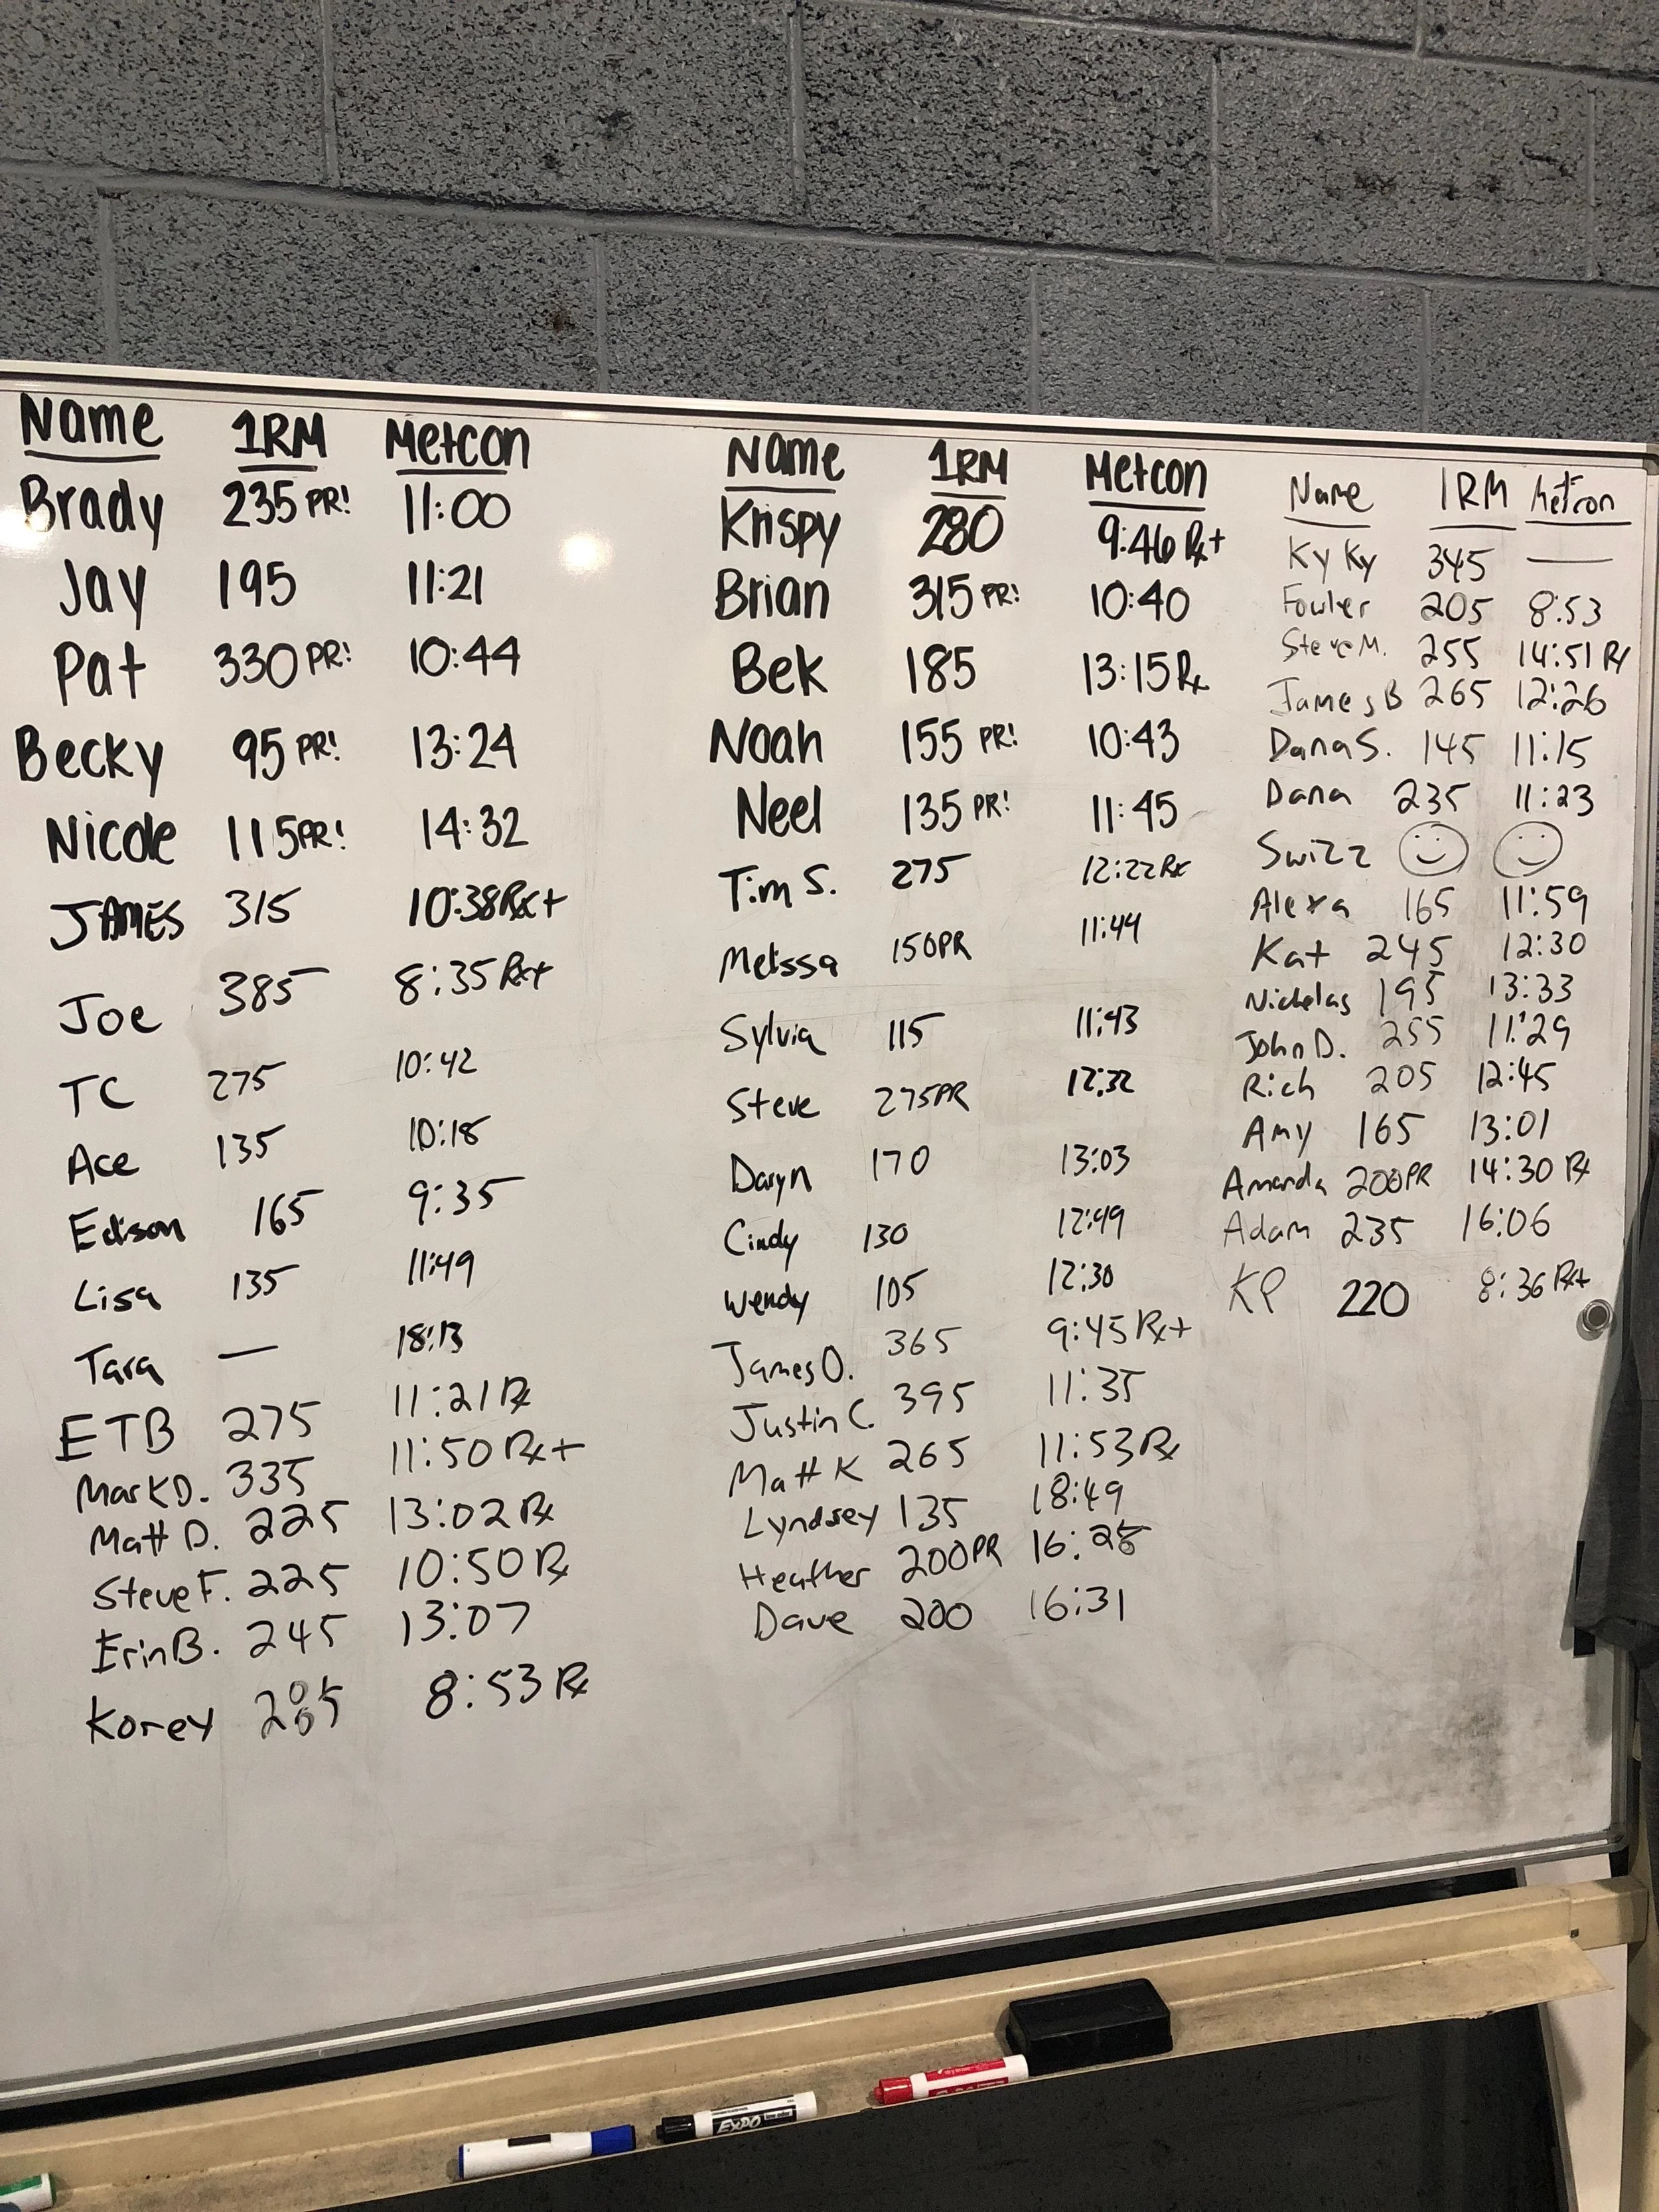 Name 1RM Metcon
Brady 235 PR! 11:00
Jay 195 11:21
Pat 330 PR! 10:44
Becky 95 PR! 13:24
Nicole 115 PR! 14:32
JAMES 315 10:38 Rx+
Joe 385 8:35 Rx+
TC 275 10:42
Ace 135 10:18
Edison 165 9:35
Lisa 135 11:49
Tara — 18:13
ETB 275 11:21 Rx
Mark D. 335 11:50 Rx+
Matt D. 225 13:02 Rx
Steve F. 225 10:50 Rx
Erin B. 245 13:07
Korey 8:53 Rx
Name 1RM Metcon
Krispy 280 9:46 Rx+
Brian 315 PR! 10:40
Bek 185 13:15 Rx
Noah 155 PR! 10:43
Neel 135 PR! 11:45
Tim S. 275 12:22 Rx
Melissa 150PR 11:49
Sylvia 115 11:43
Steve 275PR 12:32
Daryn 170 13:03
Cindy 130 12:49
Wendy 105 12:30
James O. 365 9:45 Rx+
Justin C. 395 11:35
Matt K 265 11:53 Rx
Lyndsey 135 18:49
Heather 200PR 16:28
Dave 200 16:31
Name 1RM Metcon
Ky Ky 345 —
Fowler 205 8:53
Steve M. 255 14:51 Rx
James B 265 12:26
Dana S. 145 11:15
Dana 235 11:23
Swizz
Alexa 165 11:59
Kat 245 12:30
Nicholas 195 13:33
John D. 255 11:29
Rich 205 12:45
Amy 165 13:01
Amanda 200PR 14:30 Rx
Adam 235 16:06
KP 220 8:36 Rx+
EXPO